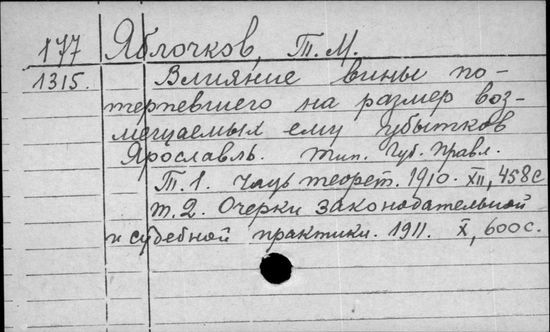 177 Яблочков, Т. М.
1315. Влияние вины по-
терпевшего на размер воз-
мещаемых ему убытков
Ярославль. тип. Губ. Правл.
Т. 1. Часть теорет. 1910. XII, 458 с
т. 2. Очерки законодательной
и судебной практики. 1911. X, 600 с.